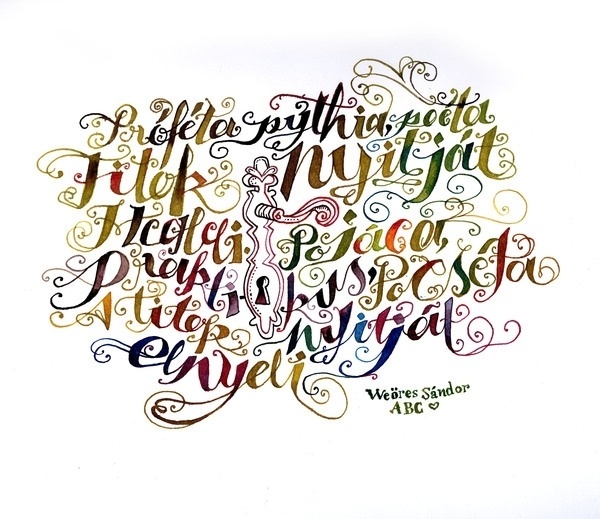 Próféta pythia, poéta
Titok nyitját
Megleli. Pojáca,
Prakti-kus, Pocséta
A titok nyitját
elnyeli
Weöres Sándor
ABC